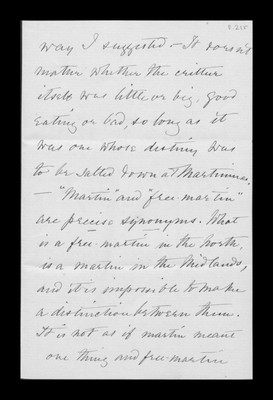 way I suggested – It doesn't
matter whether the critter
itself was little or big, good
eating or bad, so long as it
was one whose destiny was
to be salted down at Martinmas.
– "Martin" and "free-martin"
are precise synonyms. What
is a free-martin in the North,
is a martin in the Midlands,
and it is impossible to make
a distinction between them.
It is not as if martin meant
one thing and free martin